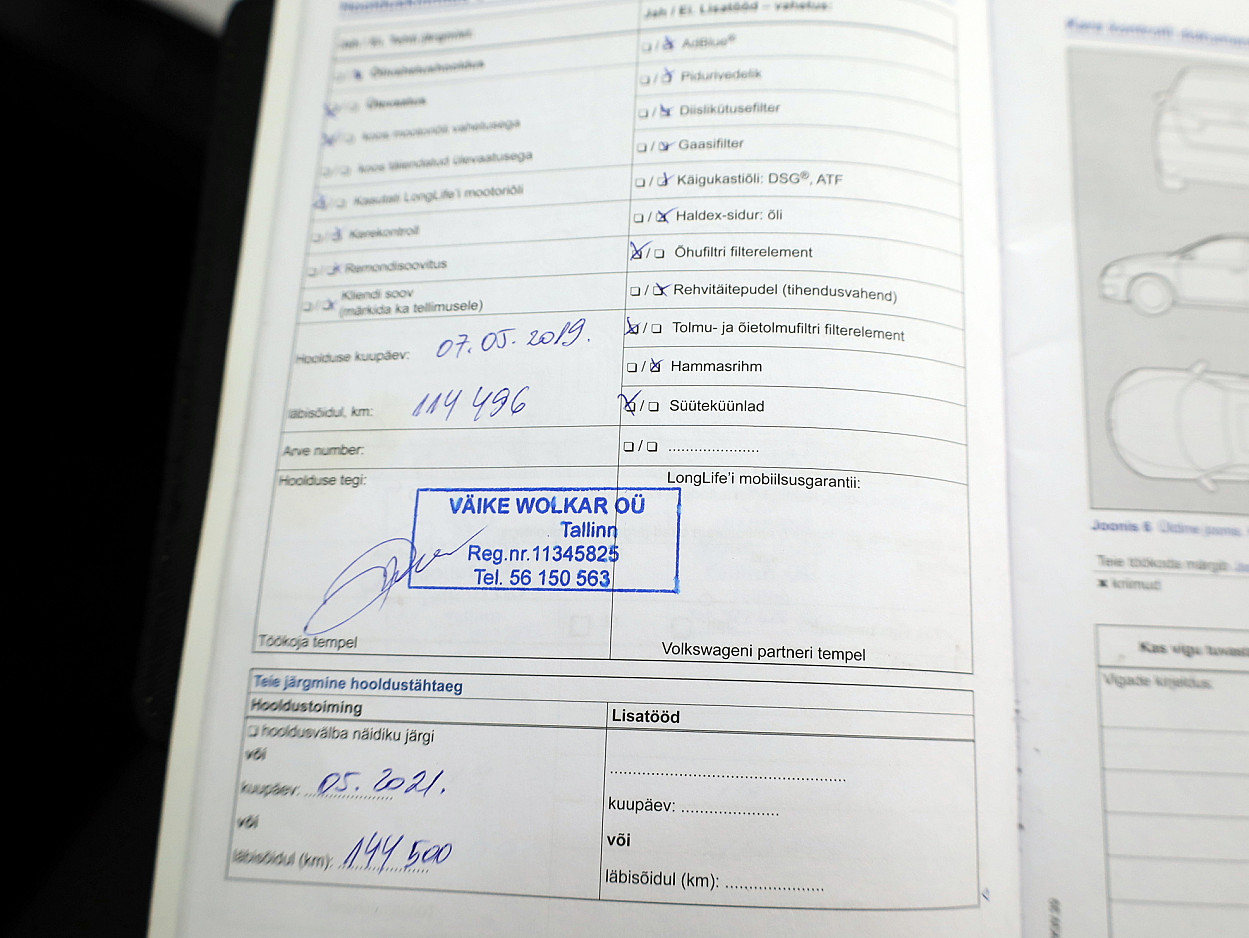 Jah / Ei. Lisatööd – vahetus:
❏ / ❏ AdBlue®
❏ / ❏ Pidurivedelik
Ülevaatus
❏ / ❏ Diislikütusefilter
koos mootoriõli vahetusega
❏ / ❏ Gaasifilter
koos täiendatud ülevaatusega
❏ / ❏ Käigukastiõli: DSG®, ATF
Kasutati LongLife'i mootoriõli
❏ / ❏ Haldex-sidur: õli
Kerekontroll
❏ / ❏ Õhufiltri filterelement
Remondisoovitus
❏ / ❏ Rehvitäitepudel (tihendusvahend)
Kliendi soov
(märkida ka tellimusele)
❏ / ❏ Tolmu- ja õietolmufiltri filterelement
Hoolduse kuupäev: 07.05.2019.
❏ / ❏ Hammasrihm
läbisõidul, km: 114 496
❏ / ❏ Süüteküünlad
Arve number:
❏ / ❏ .....................
Hoolduse tegi:
LongLife'i mobiilsusgarantii:
VÄIKE WOLKAR OÜ
Tallinn
Reg.nr.11345825
Tel. 56 150 563
Töökoja tempel
Volkswageni partneri tempel
Teie järgmine hooldustähtaeg
Hooldustoiming
Lisatööd
❏ hooldusvälba näidiku järgi
või
kuupäev: 05.2021.
või
läbisõidul (km): 144 500
kuupäev: ......................
või
läbisõidul (km): ......................
Joonis 6
Teie töökoda märgib
x kriimud
Kas vigu
Vigade kirjeldus: